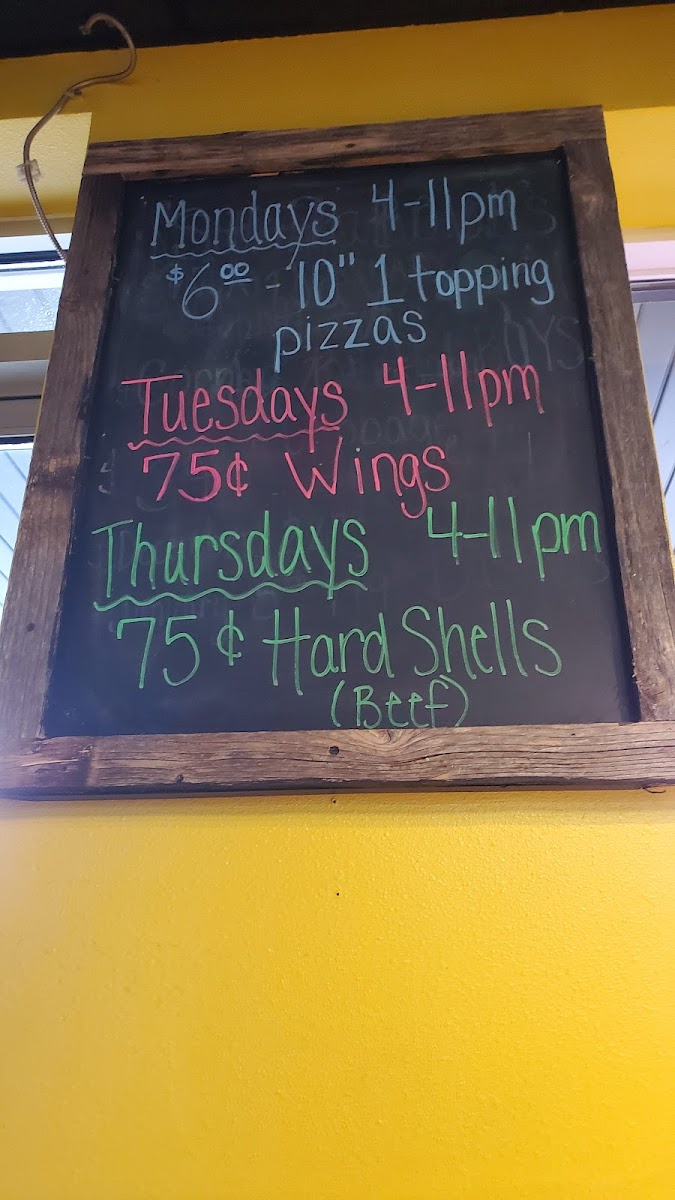 Mondays 4-11pm
$6.00 - 10" 1 topping
pizzas
Tuesdays 4-11pm
75¢ Wings
Thursdays 4-11pm
75¢ Hard Shells
(Beef)